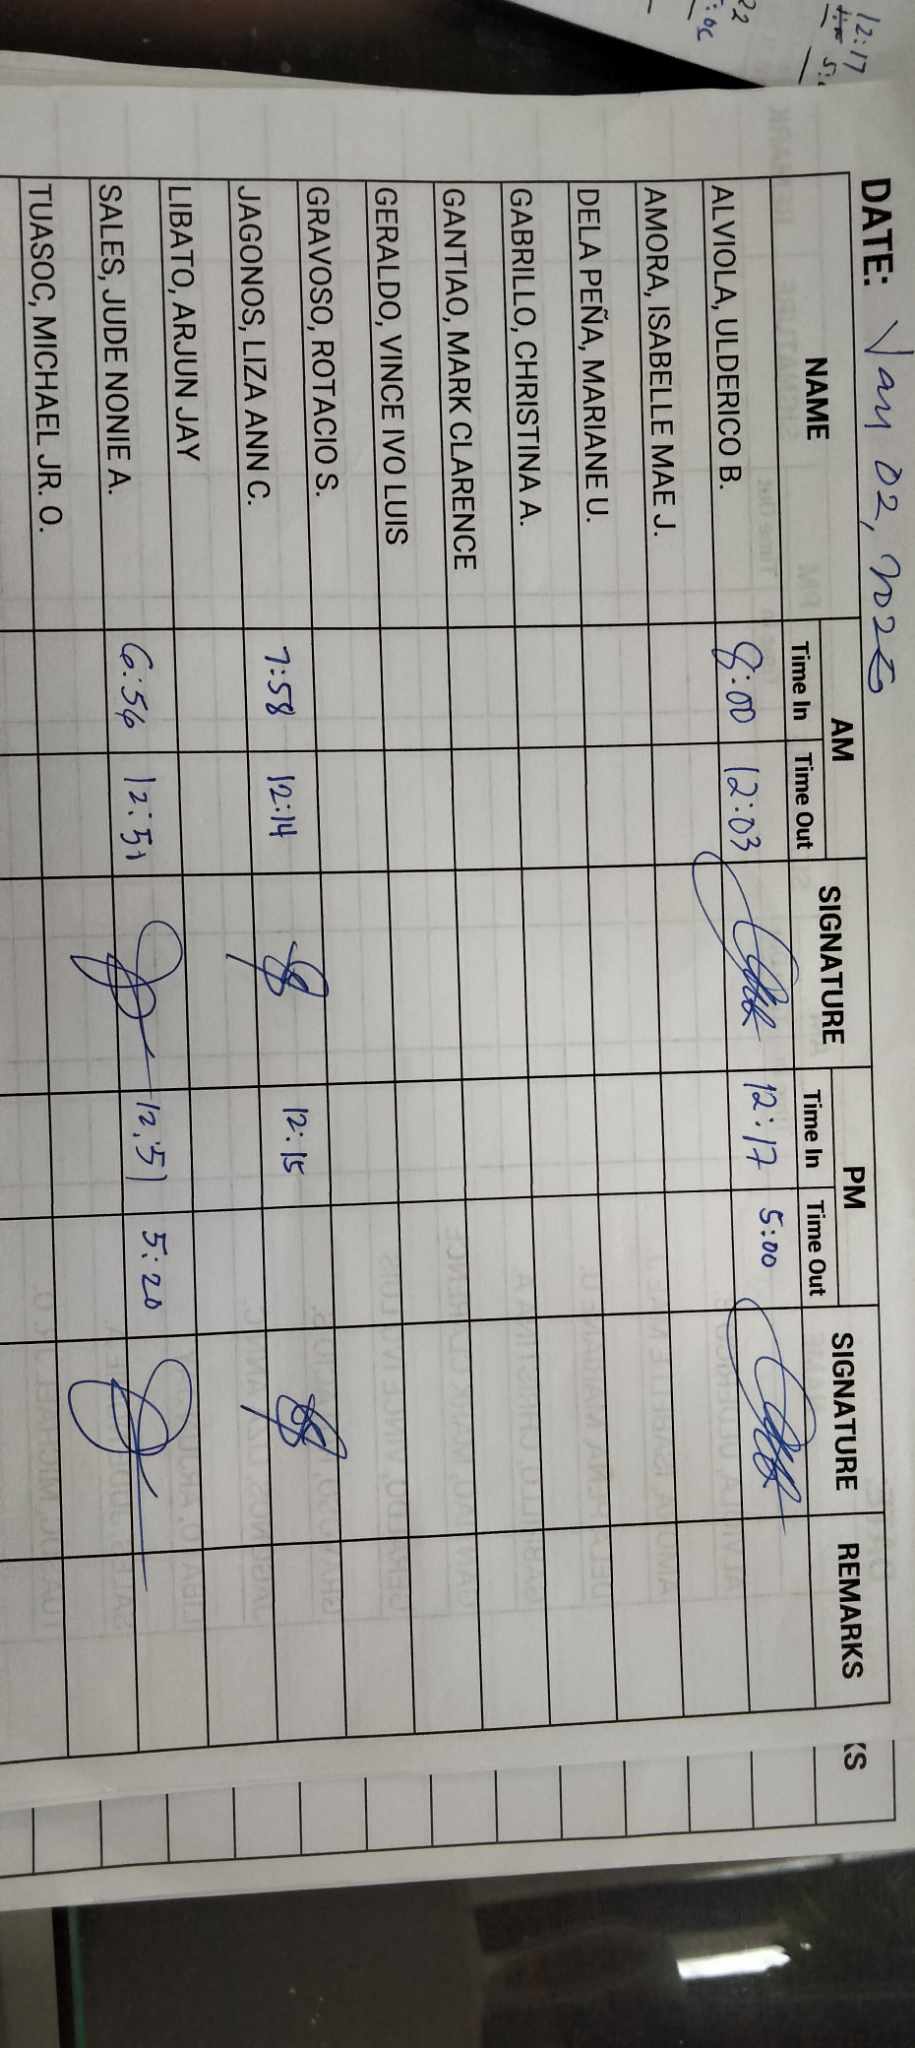 12:17
DATE: Jan 02, 2026
NAME AM SIGNATURE PM SIGNATURE REMARKS
Time In Time Out Time In Time Out
ALVIOLA, ULDERICO B. 8:00 12:03 12:17 5:00
AMORA, ISABELLE MAE J.
DELA PEÑA, MARIANE U.
GABRILLO, CHRISTINA A.
GANTIAO, MARK CLARENCE
GERALDO, VINCE IVO LUIS
GRAVOSO, ROTACIO S.
JAGONOS, LIZA ANN C. 7:58 12:14 12:15
LIBATO, ARJUN JAY
SALES, JUDE NONIE A. 6:56 12:51 12:51 5:20
TUASOC, MICHAEL JR. O.